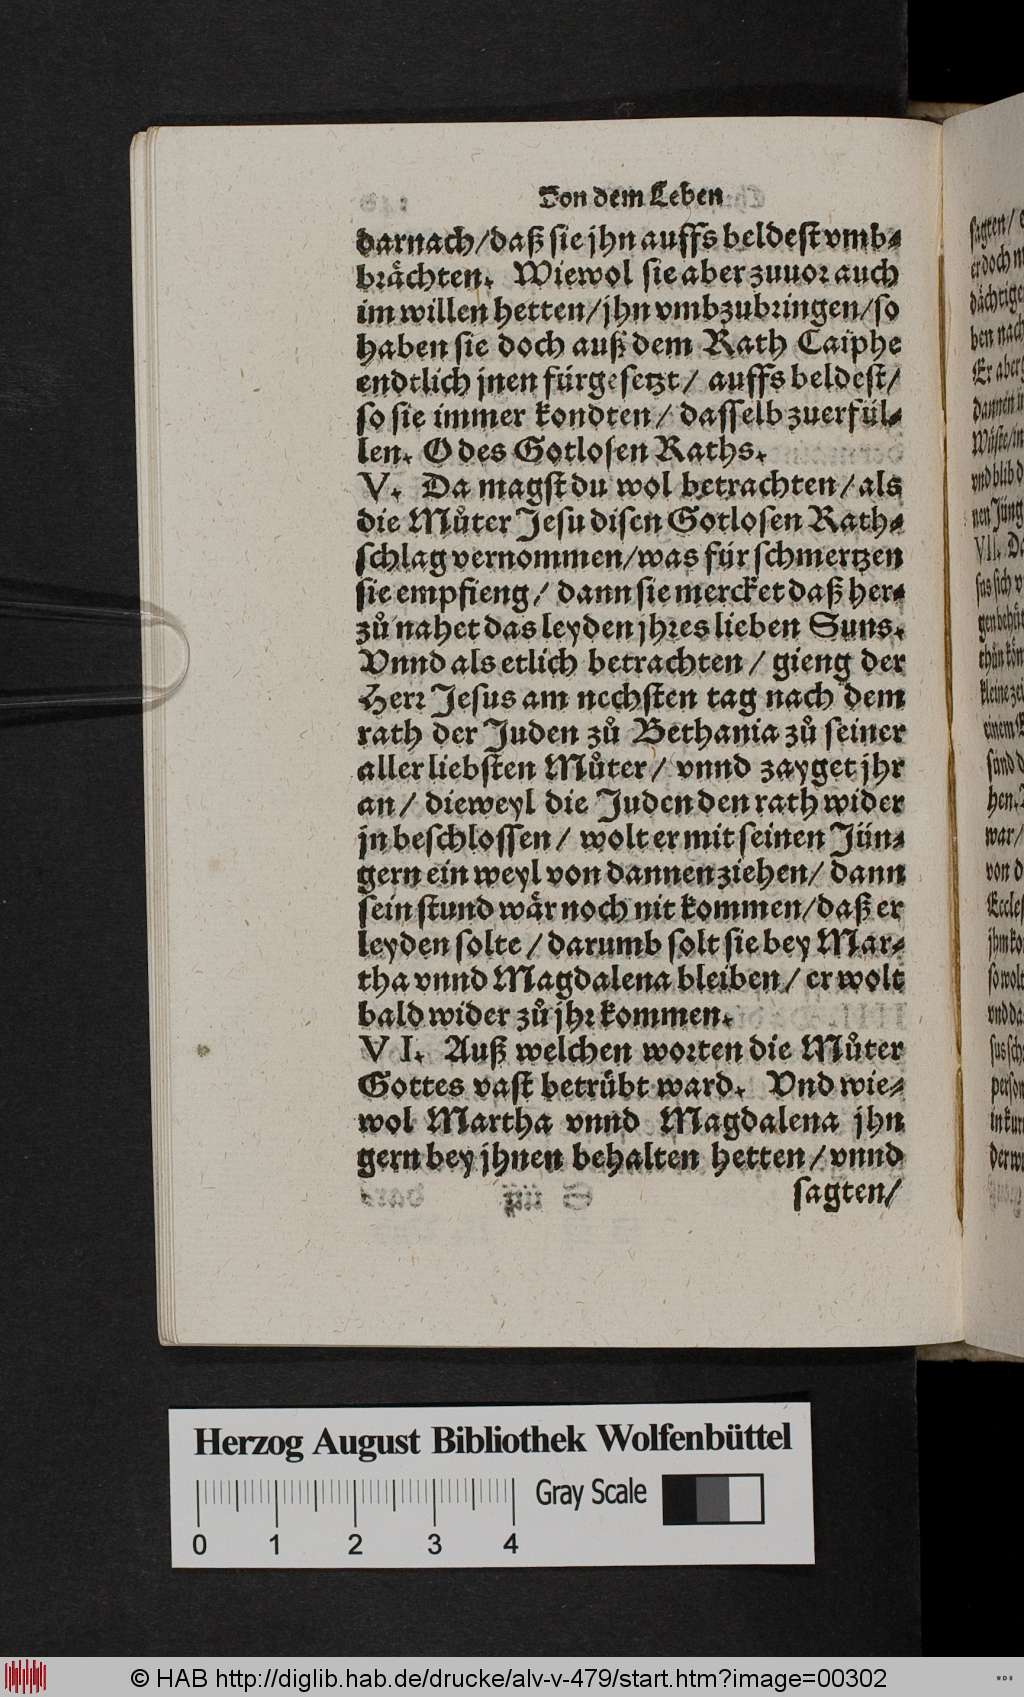 Von dem Leben
darnach/daß sie jhn auffs beldest vmb-
brächten. Wiewol sie aber zuuor auch
im willen hetten/jhn vmbzubringen/so
haben sie doch auß dem Rath Caiphe
endtlich jnen fürgesetzt/ auffs beldest/
so sie immer kondten/ dasselb zuerfül-
len. O des Gotlosen Raths.
V. Da magst du wol betrachten/als
die Můter Jesu disen Gotlosen Rath-
schlag vernommen/was für schmertzen
sie empfieng/ dann sie mercket daß her-
zů nahet das leyden jhres lieben Suns.
Vnnd als etlich betrachten/ gieng der
Herr Jesus am nechsten tag nach dem
rath der Juden zů Bethania zů seiner
aller liebsten Můter/ vnnd zayget jhr
an/ dieweyl die Juden den rath wider
jn beschlossen/ wolt er mit seinen Jün-
gern ein weyl von dannen ziehen/ dann
sein stund wär noch nit kommen/daß er
leyden solte/darumb solt sie bey Mar-
tha vnnd Magdalena bleiben/ er wolt
bald wider zů jhr kommen.
VI. Auß welchen worten die Můter
Gottes vast betrübt ward. Vnd wie-
wol Martha vnnd Magdalena jhn
gern bey jhnen behalten hetten/vnnd
sagten/
sagten/
er doch
ben nach
Er aber
dannen
vnd blib
VII. Da
kleine
einem
sünd
hen.
war/
von
so wolt
vnd da
person
in kur
Herzog August Bibliothek Wolfenbüttel
Gray Scale
0 1 2 3 4
© HAB http://diglib.hab.de/drucke/alv-v-479/start.htm?image=00302